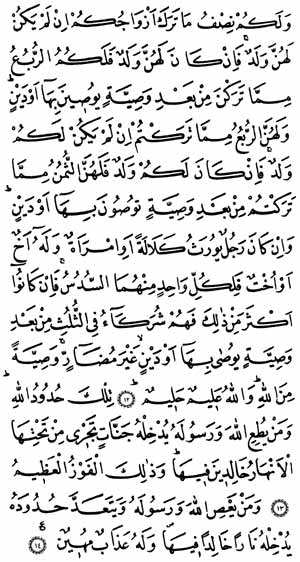 وَلَكُمْ نِصْفُ مَا تَرَكَ اَزْوَاجُكُمْ اِنْ لَمْ يَكُنْ
لَهُنَّ وَلَدٌ فَاِنْ كَانَ لَهُنَّ وَلَدٌ فَلَكُمُ الرُّبُعُ
مِمَّا تَرَكْنَ مِنْ بَعْدِ وَصِيَّةٍ يُوصِينَ بِهَا اَوْ دَيْنٍ
وَلَهُنَّ الرُّبُعُ مِمَّا تَرَكْتُمْ اِنْ لَمْ يَكُنْ لَكُمْ
وَلَدٌ فَاِنْ كَانَ لَكُمْ وَلَدٌ فَلَهُنَّ الثُّمُنُ مِمَّا
تَرَكْتُمْ مِنْ بَعْدِ وَصِيَّةٍ تُوصُونَ بِهَا اَوْ دَيْنٍ
وَاِنْ كَانَ رَجُلٌ يُورَثُ كَلَالَةً اَوِ امْرَاَةٌ وَلَهُ اَخٌ
اَوْ اُخْتٌ فَلِكُلِّ وَاحِدٍ مِنْهُمَا السُّدُسُ فَاِنْ كَانُوا
اَكْثَرَ مِنْ ذٰلِكَ فَهُمْ شُرَكَاءُ فِى الثُّلُثِ مِنْ بَعْدِ
وَصِيَّةٍ يُوصٰى بِهَا اَوْ دَيْنٍ غَيْرَ مُضَارٍّ وَصِيَّةً
مِنَ اللّٰهِ وَاللّٰهُ عَلِيمٌ حَلِيمٌ ﴿١٢﴾ تِلْكَ حُدُودُ اللّٰهِ
وَمَنْ يُطِعِ اللّٰهَ وَرَسُولَهُ يُدْخِلْهُ جَنَّاتٍ تَجْرِى مِنْ تَحْتِهَا
الْاَنْهَارُ خَالِدِينَ فِيهَا وَذٰلِكَ الْفَوْزُ الْعَظِيمُ
﴿١٣﴾ وَمَنْ يَعْصِ اللّٰهَ وَرَسُولَهُ وَيَتَعَدَّ حُدُودَهُ
يُدْخِلْهُ نَارًا خَالِدًا فِيهَا وَلَهُ عَذَابٌ مُهِينٌ ﴿١٤﴾